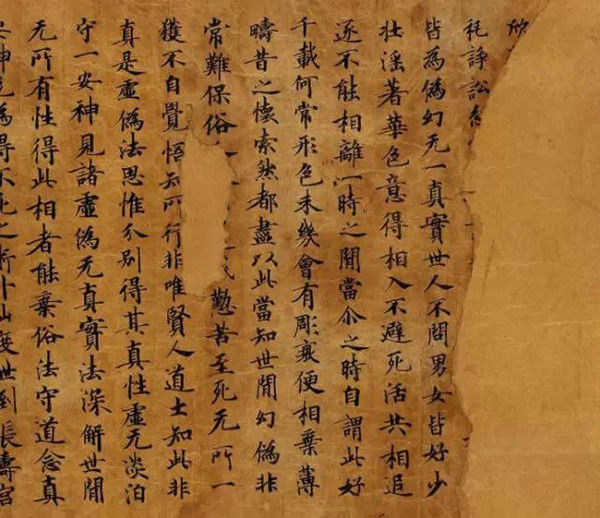 欣
秏諍訟
皆為偽幻无一真實世人不問男女皆好少
壯淫著華色意得相入不避死活共相追
逐不能相離一時之間當尒之時自謂此好
千載何常形色未幾會有彫衰便相棄薄
疇昔之懷索然都盡以此當知世間幻偽非
常難保俗懃苦至死无所一
獲不自覺悟知所行非唯賢人道士知此非
真是虛偽法思惟分別得其真性虛无淡泊
守一安神見諸虛偽无真實法深解世間
无所有性得此相者能棄俗法守道念真
安神為得不死之術升仙度世到長壽宮